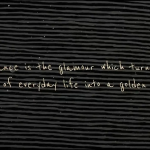 is the glamour which
of everyday life into a golden